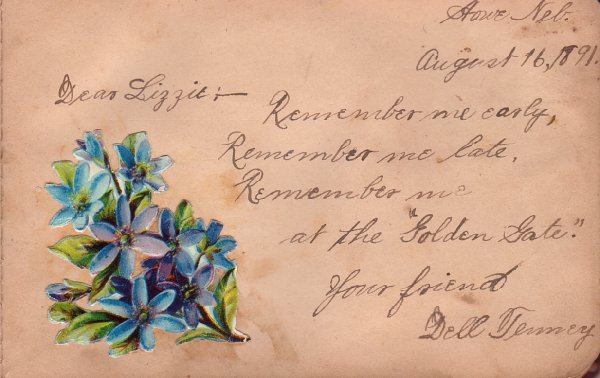 Howe Neb.
August 16, 1891.
Dear Lizzie:—
Remember me early,
Remember me late,
Remember me
at the "Golden Gate."
Your friend
Dell Tenney